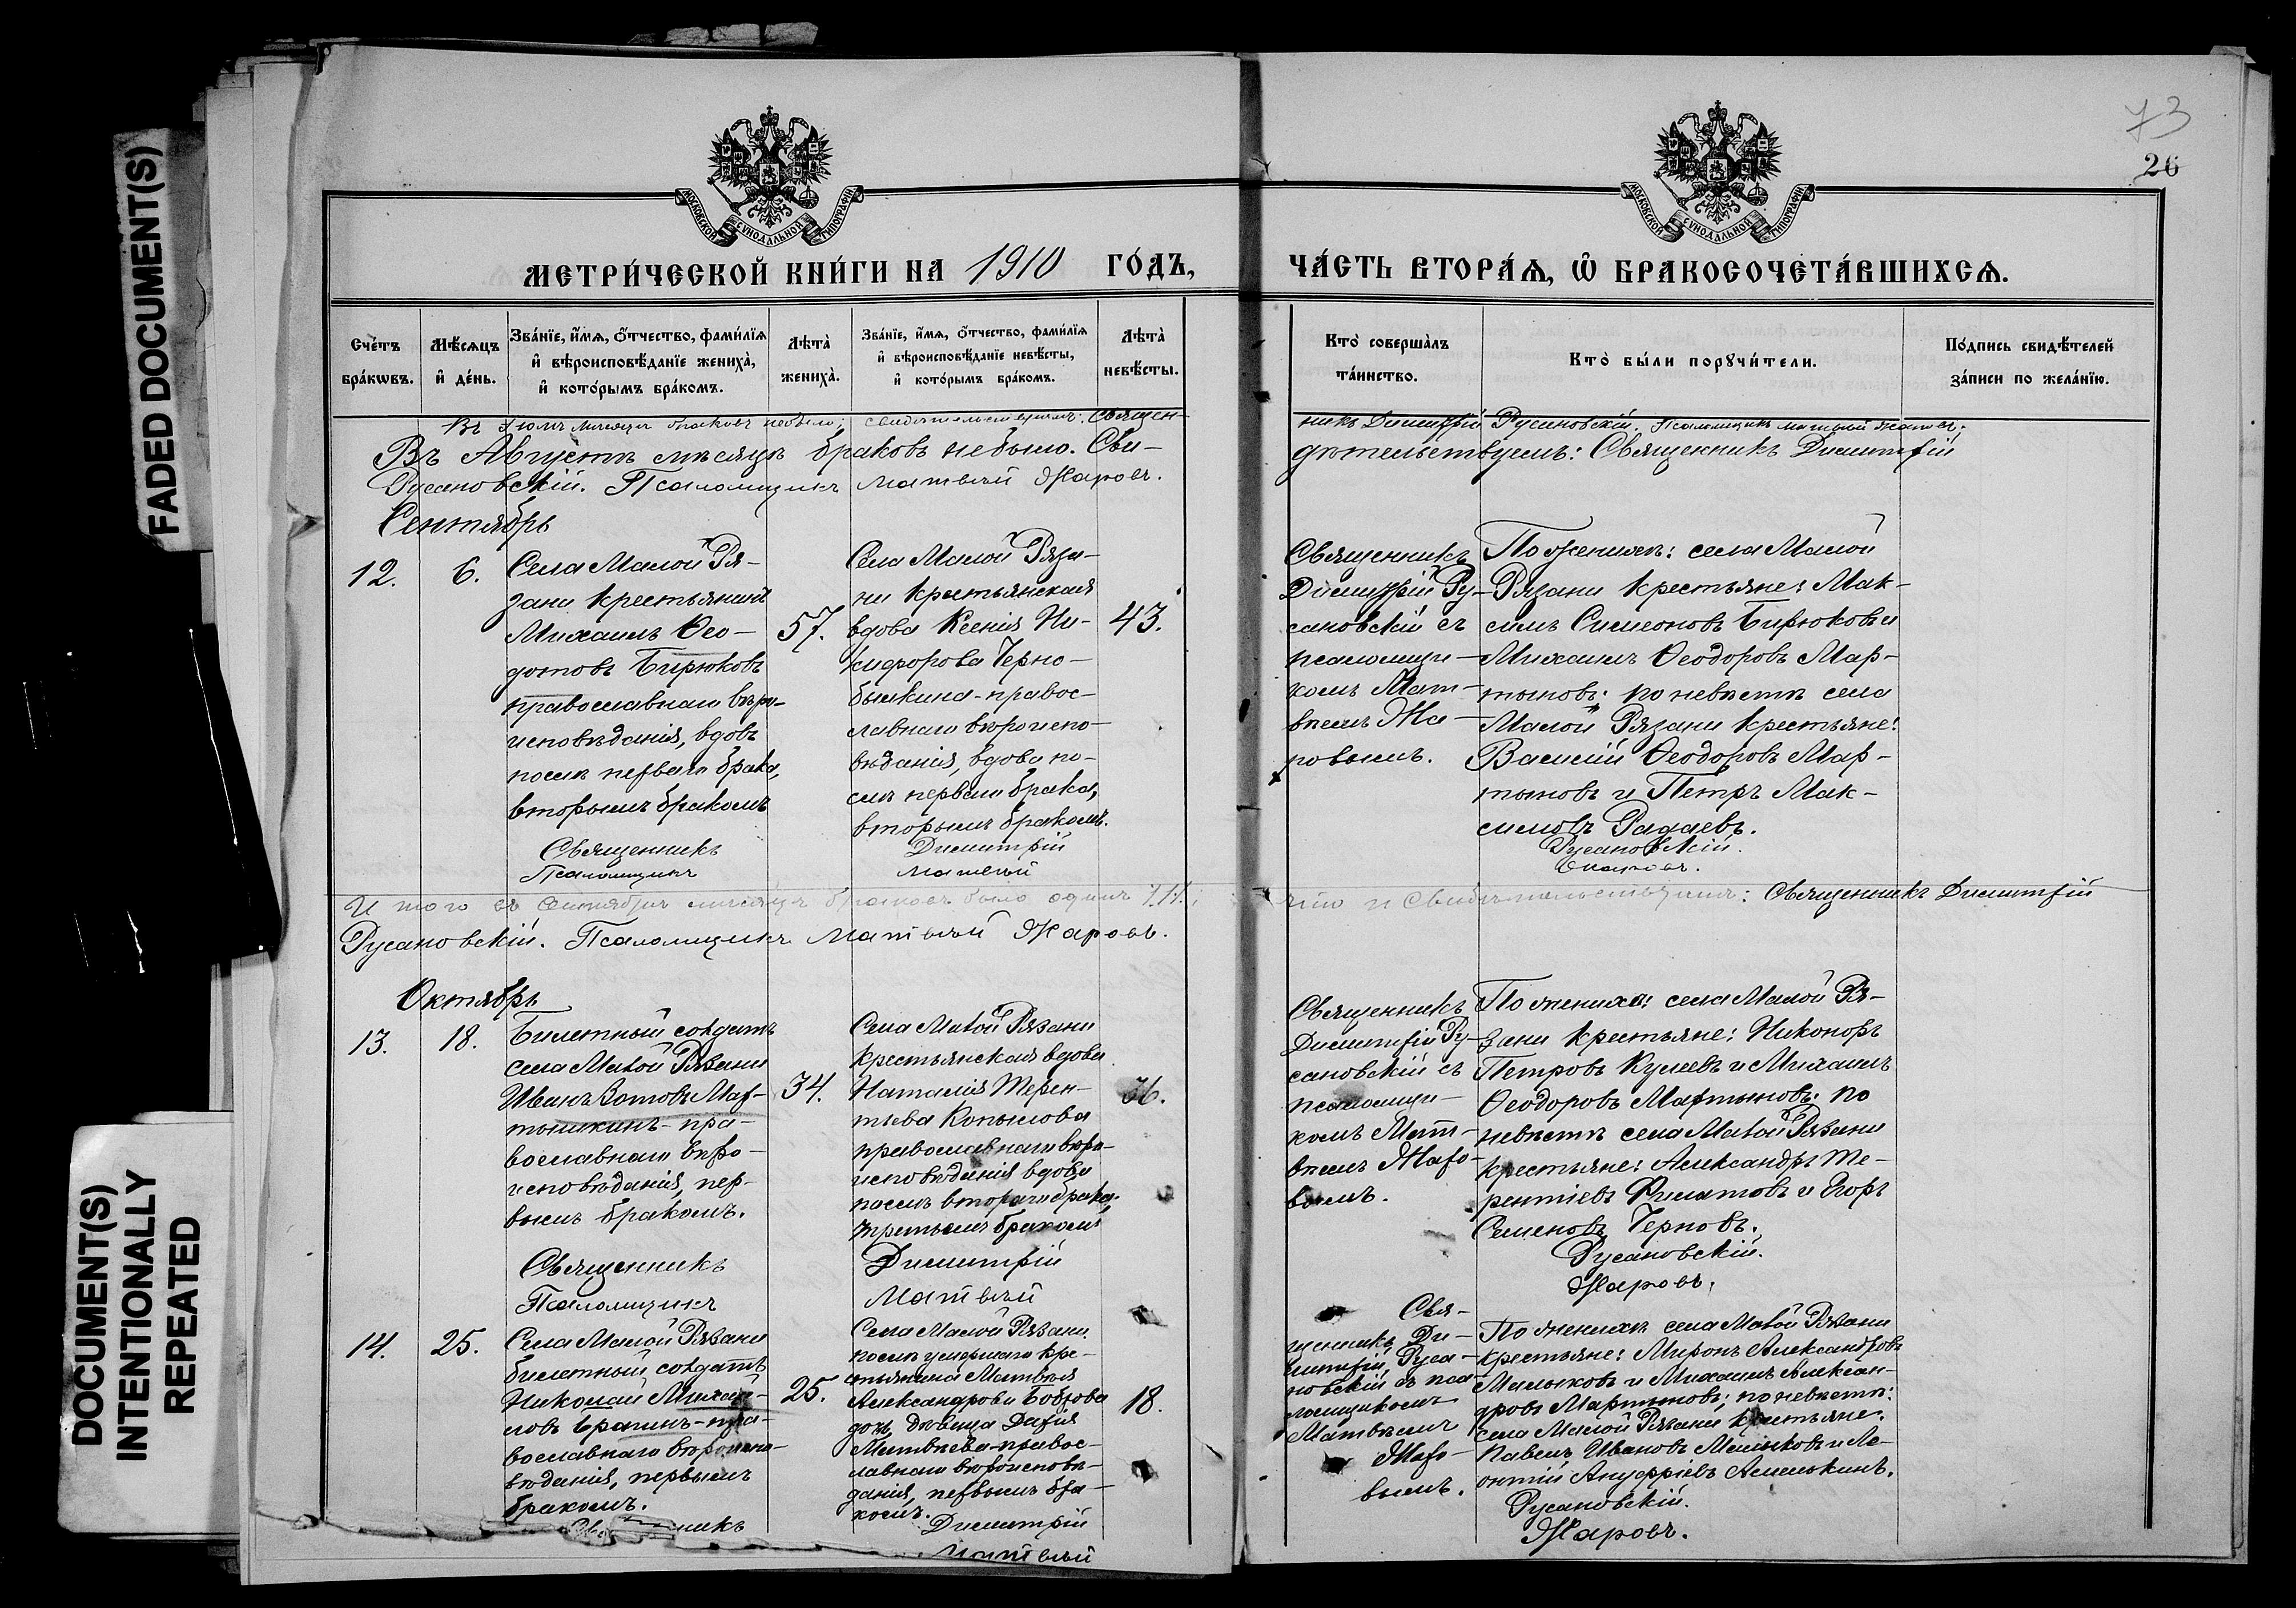 FADED DOCUMENT(S)
DOCUMENT(S)
INTENTIONALLY
REPEATED
73
26
МОСКОВСКОЙ СѴНОДАЛЬНОЙ ТИПОГРАФІИ
МОСКОВСКОЙ СѴНОДАЛЬНОЙ ТИПОГРАФІИ
МЕТРИ́ЧЕСКОЙ КНИ́ГИ НА 1910 ГО́ДЪ,
ЧА́СТЬ ВТОРА́Ѧ, Ѽ БРАКОСОЧЕТА́ВШИХСѦ.
Сче́тъ бра́кѡвъ.
Мѣ́сѧцъ и҆ де́нь.
Зва́нїе, и҆́мѧ, ѻ҆́тчество, фами́лїѧ и҆ вѣроисповѣ́данїе жениха̀, и҆ кото́рымъ бра́комъ.
Лѣта̀ жениха̀.
Зва́нїе, и҆́мѧ, ѻ҆́тчество, фами́лїѧ и҆ вѣроисповѣ́данїе невѣ́сты, и҆ кото́рымъ бра́комъ.
Лѣта̀ невѣ́сты.
Кто̀ соверша̀лъ та́инство.
Кто̀ бы́ли порꙋчи́тели.
По́дпись свидѣ́телей за́писи по жела́нїю.
Въ Іюлѣ мѣсяцѣ браковъ небыло; свидѣтельствуемъ: Священ-
никъ Димитрій Русановскій. Псаломщикъ Матвѣй Жаровъ.
Въ Августѣ мѣсяцѣ браковъ небыло. Сви-
дѣтельствуемъ: Священникъ Димитрій
Русановскій. Псаломщикъ Матвѣй Жаровъ.
Сентябрь
12.
6.
Села Малой Ря-
зани крестьянинъ
Михаилъ Ѳео-
дотовъ Бирюковъ
православнаго вѣро-
исповѣданія, вдовъ
послѣ перваго брака,
вторымъ бракомъ
57.
Села Малой Ряза-
ни крестьянская
вдова Ксенія Ни-
кифорова Черно-
бышкина - правос-
лавнаго вѣроиспо-
вѣданія, вдова по-
слѣ перваго брака,
вторымъ бракомъ.
43.
Священникъ
Димитрій Ру-
сановскій съ
псаломщи-
комъ Мат-
вѣемъ Жа-
ровымъ.
По женихѣ: села Малой
Рязани крестьяне: Мак-
симъ Симеоновъ Бирюковъ и
Михаилъ Ѳеодоровъ Мар-
тыновъ; по невѣстѣ села
Малой Рязани крестьяне:
Василій Ѳеодоровъ Мар-
тыновъ и Петръ Мак-
симовъ Радаевъ.
Священникъ Димитрій Русановскій.
Псаломщикъ Матвѣй Жаровъ.
Итого въ Сентябрѣ мѣсяцѣ браковъ было одинъ /1/; что и свидѣтельствуемъ: Священникъ Димитрій
Русановскій. Псаломщикъ Матвѣй Жаровъ.
Октябрь
13.
18.
Билетный солдатъ
села Малой Рязани
Иванъ Зотовъ Мар-
тышкинъ - пра-
вославнаго вѣро-
исповѣданія, пер-
вымъ бракомъ.
34.
Села Малой Рязани
крестьянская вдова
Наталія Терен-
тьева Копылова
православнаго вѣро-
исповѣданія вдова
послѣ втораго брака,
третьимъ бракомъ
36.
Священникъ
Димитрій Ру-
сановскій съ
псаломщи-
комъ Мат-
вѣемъ Жаро-
вымъ.
По женихѣ: села Малой Ря-
зани крестьяне: Никоноръ
Петровъ Куляевъ и Михаилъ
Ѳеодоровъ Мартыновъ; по
невѣстѣ села Малой Рязани
крестьяне: Александръ Те-
рентіевъ Филатовъ и Егоръ
Семеновъ Черновъ.
Священникъ Димитрій Русановскій.
Псаломщикъ Матвѣй Жаровъ.
14.
25.
Села Малой Рязани
билетный солдатъ
Николай Михаи-
ловъ Ерапинъ - пра-
вославнаго вѣроиспо-
вѣданія, первымъ
бракомъ.
25.
Села Малой Рязани
послѣ умершаго кре-
стьянина Матвѣя
Александрова Боброва
дочь, дѣвица Дарія
Матвѣева - правос-
лавнаго вѣроисповѣ-
данія, первымъ бра-
комъ.
18.
Свя-
щенникъ Ди-
митрій Руса-
новскій съ пса-
ломщикомъ
Матвѣемъ
Жаро-
вымъ.
По женихѣ села Малой Рязани
крестьяне: Миронъ Александровъ
Мальковъ и Михаилъ Алексан-
дровъ Мартыновъ; по невѣстѣ:
села Малой Рязани крестьяне:
Павелъ Ивановъ Мальковъ и Ле-
онтій Ануфріевъ Амелькинъ.
Священникъ Димитрій Русановскій.
Матвѣй Жаровъ.